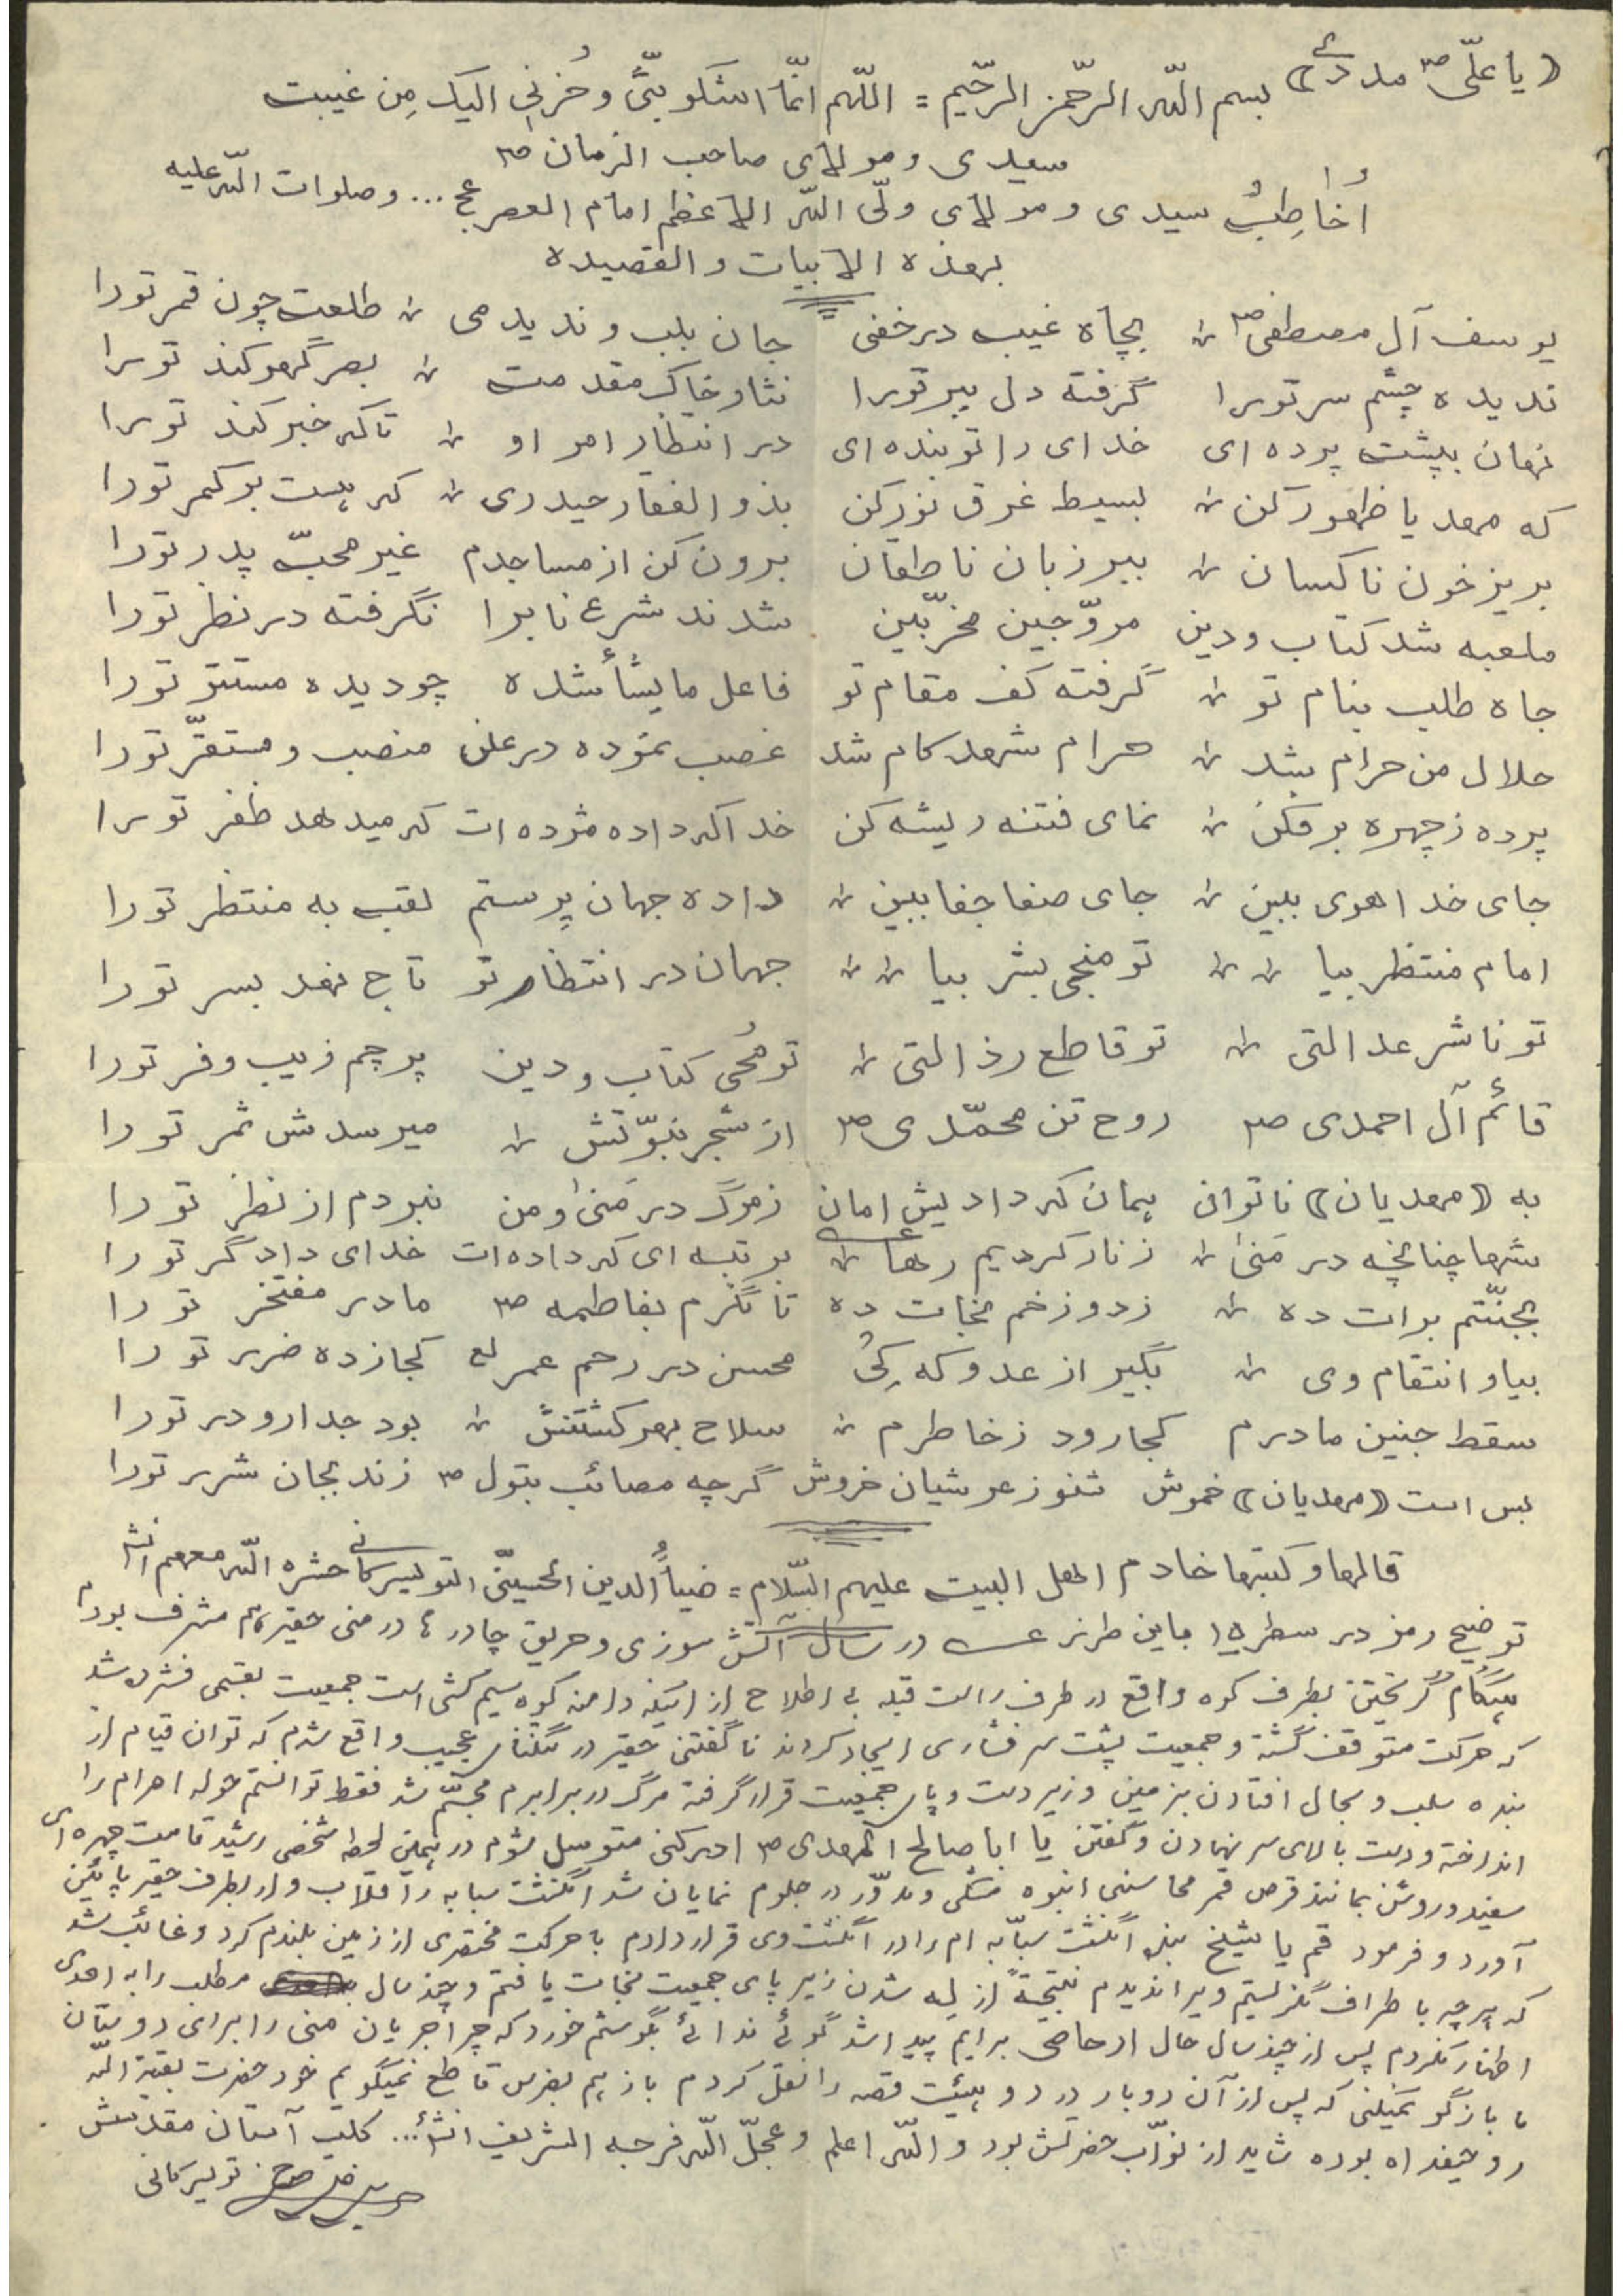 (یا علّی ص مددے) بسم اللّه الرحّمن الرحّیم = اللّهم انّما اشکو بثّی وحُزنی الیک مِن غیبت
سیدی و مولای صاحب الزمان ص
اُخاطِبُ سیدی و مولای ولّی اللّه الاعظم امام العصر عج ... و صلوات اللّه علیه
بهذه الابیات و القصیده
یوسف آل مصطفی ص بچاه غیب در خفی جان بلب و ندیدمی طلعت چون قمر تورا
ندیده چشم سر تورا گرفته دل ببر تورا نثار خاک مقدمت بصر گهر کند تورا
نهان بپشت پرده ای خدای را تو بنده ای در انتظار امر او تا که خبر کند تورا
که مهدیا ظهور کن بسیط غرق نور کن بذوالفقار حیدری که هست بر کمر تورا
بریز خون ناکسان ببر زبان ناطقان برون کن از مساجدم غیر محبّ پدر تورا
ملعبه شد کتاب و دین مروّجین مخرّبین شدند شرع نابرا نگرفته در نظر تورا
جاه طلب بنام تو گرفته کف مقام تو فاعل مایشأ شده چو دیده مستتر تورا
حلال من حرام شد حرام شهد کام شد غصب نموده در علن منصب و مستقرّ تورا
پرده ز چهره بر فکن نمای فتنه ریشه کن خدا که داده مژده ات که میدهد ظفر تورا
جای خدا هوی ببین جای صفا جفا ببین داده جهان پرستم لقب به منتظر تورا
امام منتظر بیا تو منجی بشر بیا جهان در انتظار تو تاج نهد بسر تورا
تو ناشر عدالتی تو قاطع رذالتی تو مُحی کتاب و دین پرچم زیب و فر تورا
قائم آل احمدی ص روح تن محمّدی ص از شجر نبوّتش میرسدش ثمر تورا
به (مهدیان) ناتوان همان که دادیش امان ز مرگ در مَنیٰ و من نبردم از نظر تورا
شها چنانچه در مَنیٰ ز نار کردیم رها بر تبه ای که داده ات خدای دادگر تورا
بجنّتم برات ده ز دوزخم نجات ده تا نگرم بفاطمه ص مادر مفتخر تورا
بیا و انتقام وی بگیر از عدو که کِیُ محسن در رحم عمر لع کجا زده ضرر تورا
سقط جنین مادرم کجا رود ز خاطرم سلاح بهر کشتنش بود جدار و در تورا
بس است (مهدیان) خموش شنو ز عرشیان خروش گرچه مصائب بتول ص زند بجان شرر تورا
قالها و کتبتها خادم اهل البیت علیهم السّلام = ضیاُالدین الحسینّی التویسرکانی حشره اللّه معهم انش
توضیح رمز در سطر ۱۵ باین طرز عـ در سال آتش سوزی و حریق چادرها در منی حقیر هم مشرف بودم
هنگام گریختن بطرف کوه واقع در طرف راست قبله بی اطلاع از اینکه دامنه کوه سیم کشی است جمعیت بقسمی فشرده شد
که حرکت متوقف گشته و جمعیت پشت سر فشاری ایجاد کردند ناگفتنی حقیر در تنگنای عجیب واقع شدم که توان قیام از
بنده سلب و بحال افتادن بزمین و زیر دست و پای جمعیت قرار گرفته مرگ در برابرم مجسّم شد فقط توانستم حوله احرام را
انداخته و دست بالای سر نهادن و گفتن یا ابا صالح المهدی ص ادرکنی متوسل شوم در همین لحظه شخصی رشید قامت چهره ای
سفید و روشن بمانند قرص قمر محاسنی انبوه مشکی و مدوّر در جلوم نمایان شد انگشت سبابه را قلاب وار بطرف حقیر پائین
آورد و فرمود قم یا شیخ بنده انگشت سبّابه ام را در انگشت وی قرار دادم با حرکت مختصری از زمین بلندم کرد و غائب شد
که هر چه باطراف نگریستم ویرا ندیدم نتیجةً از له شدن زیر پای جمعیت نجات یافتم و چند سال مطلب را به احدی
اظهار نکردم پس از چند سال حال ارحاصی برایم پیدا شد گوئی ندائی بگوشم خورد که چرا جریان منی را برای دوستان
ما بازگو نمیکنی که پس از آن دوبار در دو هیئت قصه را نقل کردم باز هم بضرس قاطع نمیگویم خود حضرت بقیة اللّه
روحیفداه بوده شاید از نوّاب حضرتش بود و اللّه اعلم و عجلّ اللّه فرجه الشریف انشأ... کلب آستان مقدسش
تویسرکانی